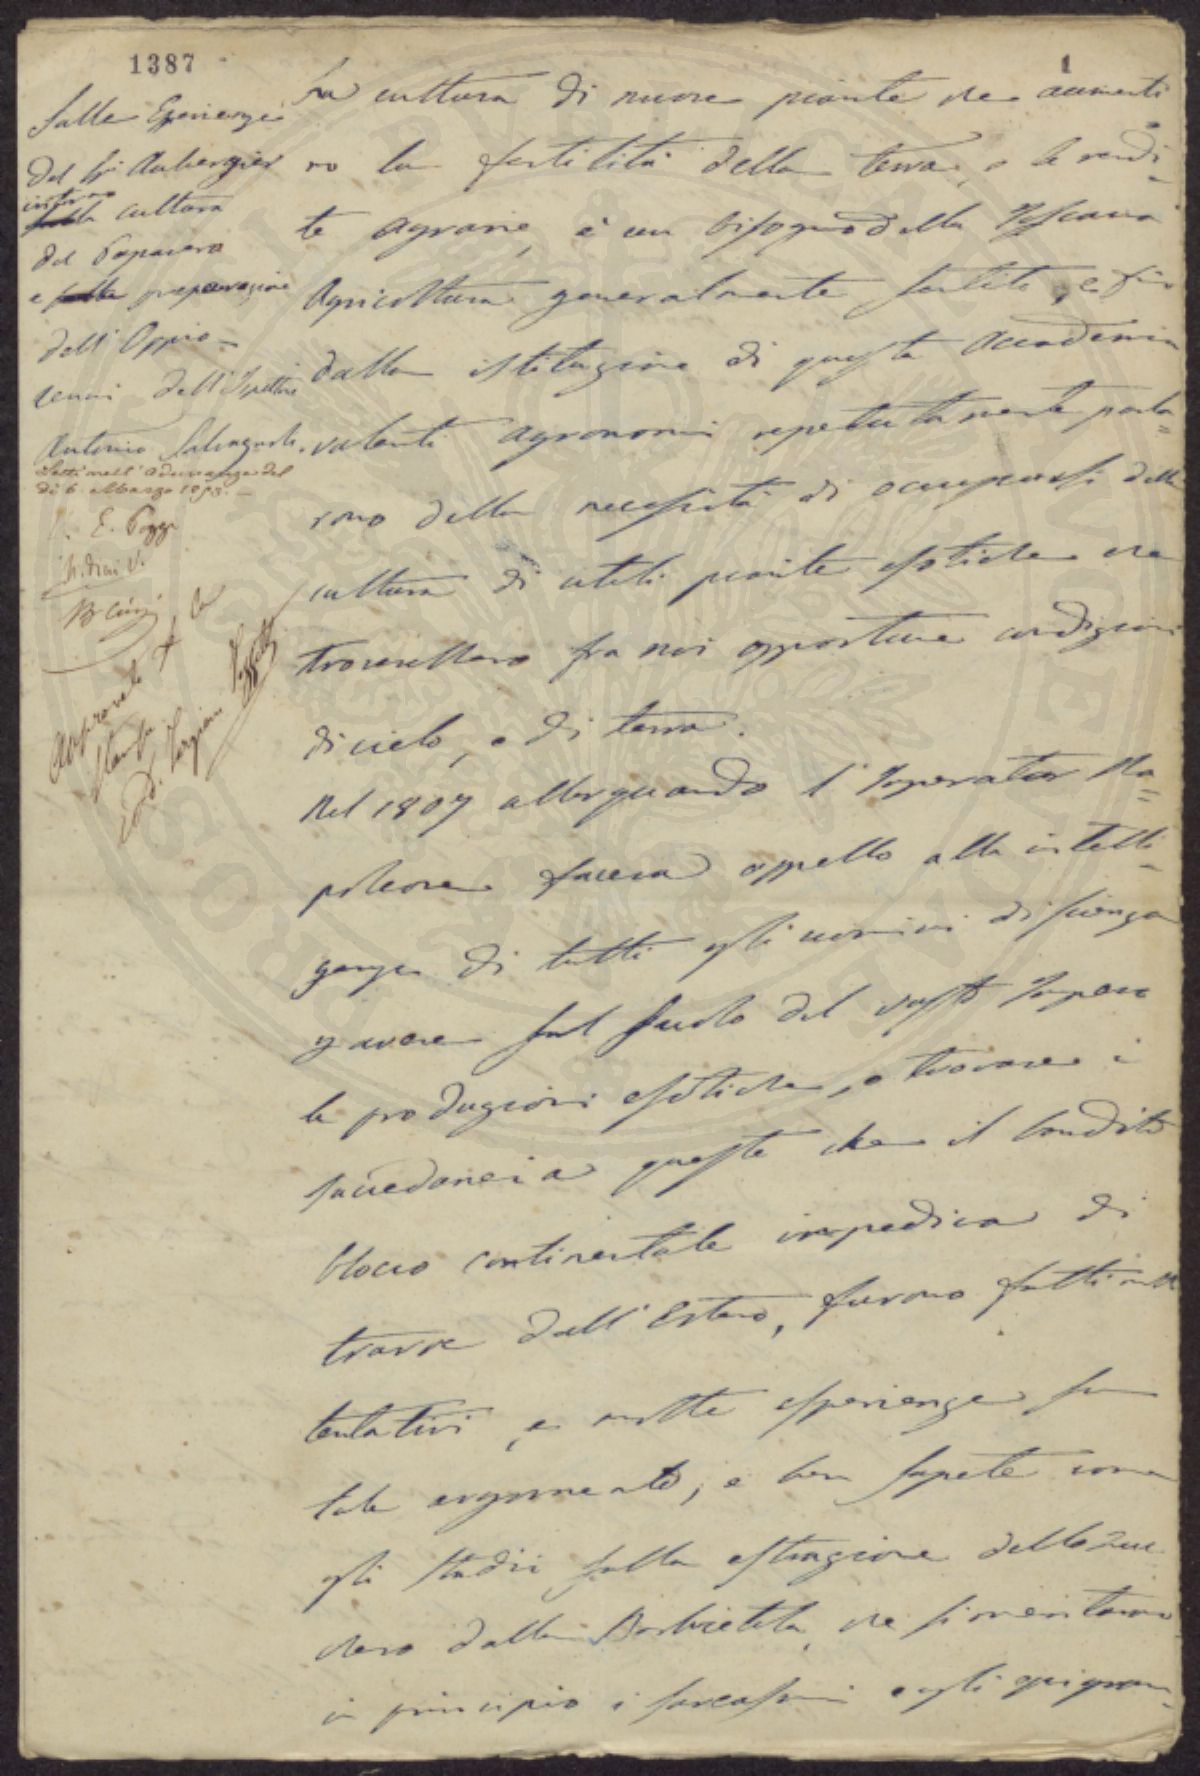 1387
1
Sulle Esperienze
del Sr Aubergier
intorno
alla cultura
del Papavero
e sulla preparazione
dell'Oppio
cenni dell'Ispettore
Antonio Salvagnoli.
Letti nell'Adunanza del
dì 6 Marzo 1853.
E. Poggi
Approvato per la
stampa
Ad. Targioni Tozzetti
La cultura di nuove piante che aumenti
no la fertilità della terra, e le rendi-
te agrarie, è un bisogno della Toscana
Agricoltura generalmente sentito, e fino
dalla istituzione di questa Accademia
valenti agronomi repetutamente parla=
rono della necessità di occuparsi della
cultura di utili piante esotiche che
trovassero fra noi opportune condizioni
di cielo, e di terra.
Nel 1807 allorquando l'Imperator Na=
poleone faceva appello alla intelli-
genza di tutti gli uomini di scienza
p avere sul suolo del vasto Impero
le produzioni esotiche, o trovare i
succedanei a queste che il bandito
blocco continentale impediva di
trarre dall'Estero, furono fatti molti
tentativi, e molte esperienze su
tale argomento; e ben sapete come
gli studii sulla estrazione dello Zuc
chero dalla Barbietola, che si meritarono
in principio i sarcasmi e gli epigram-